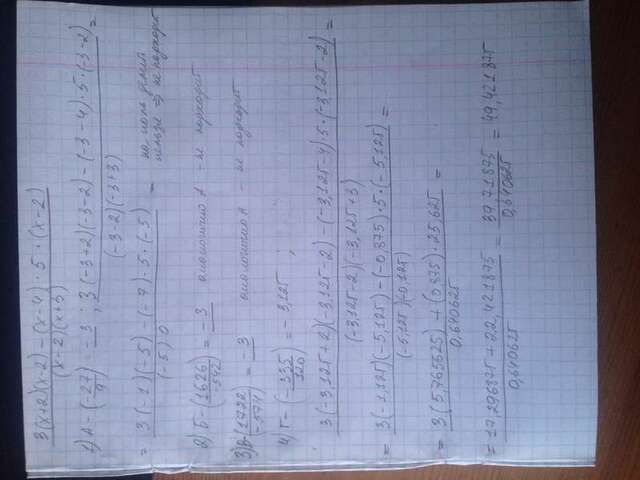 3(x+2)(x-2) - (x-4) · 5 · (x-2)
(x-2)(x+3)
1) А - (-27/9) = -3 ; 3(-3+2)(-3-2) - (-3-4) · 5 · (-3-2) =
(-3-2)(-3+3)
= 3(-1)(-5) - (-7) · 5 · (-5) = на ноль делить
(-5) 0 нельзя => не подходит
2) Б - (1626/-542) = -3 аналогично А - не подходит
3) В - (1722/-574) = -3 аналогично А - не подходит
4) Г - (-335/120) = -3,125 ;
3(-3,125+2)(-3,125-2) - (-3,125-4) · 5 · (-3,125-2) =
(-3,125-2)(-3,125+3)
= 3(-1,125)(-5,125) - (-0,875) · 5 · (-5,125) =
(-5,125)(-0,125)
= 3(5,765625) + (0,875) · 25,625 =
0,640625
= 17,296875 + 22,421875 = 39,71875 = 49,421875
0,640625 0,640625